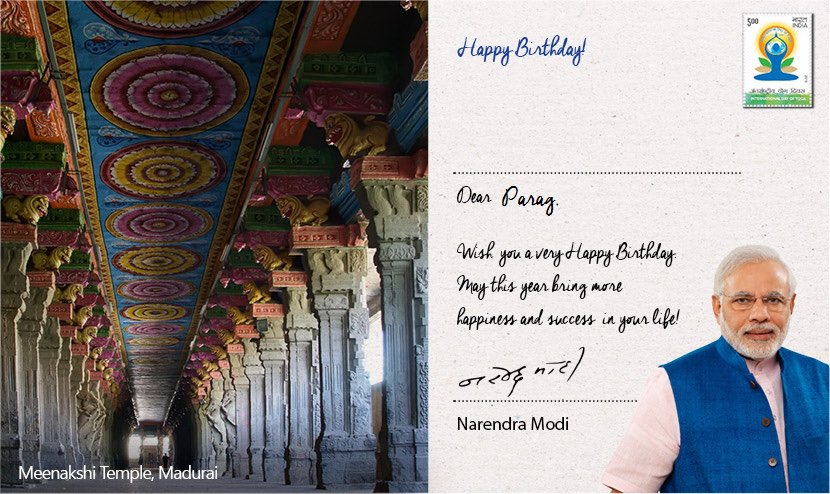 Meenakshi Temple, Madurai
Happy Birthday!
5.00 भारत
INDIA
अंतर्राष्ट्रीय योग दिवस
INTERNATIONAL DAY OF YOGA
Dear Parag,
Wish you a very Happy Birthday.
May this year bring more
happiness and success in your life!
नरेन्द्र मोदी
Narendra Modi